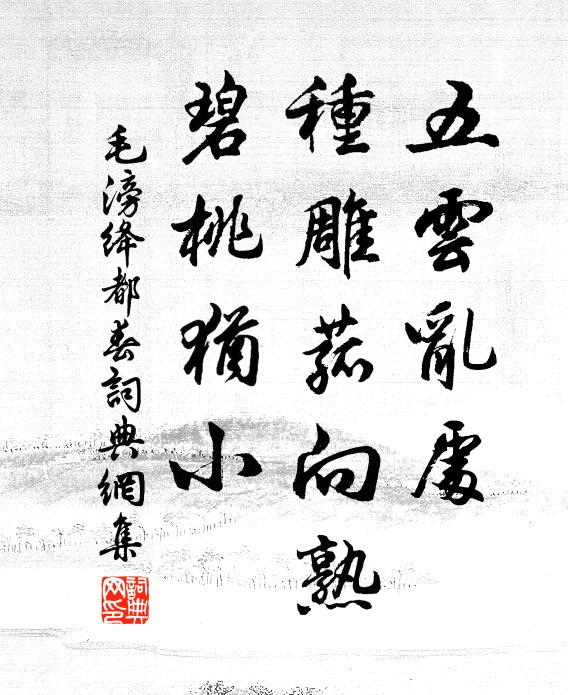 五雲亂處
種雕菰向熟
碧桃猶小
毛滂絳都春詞典網集
詞典网印